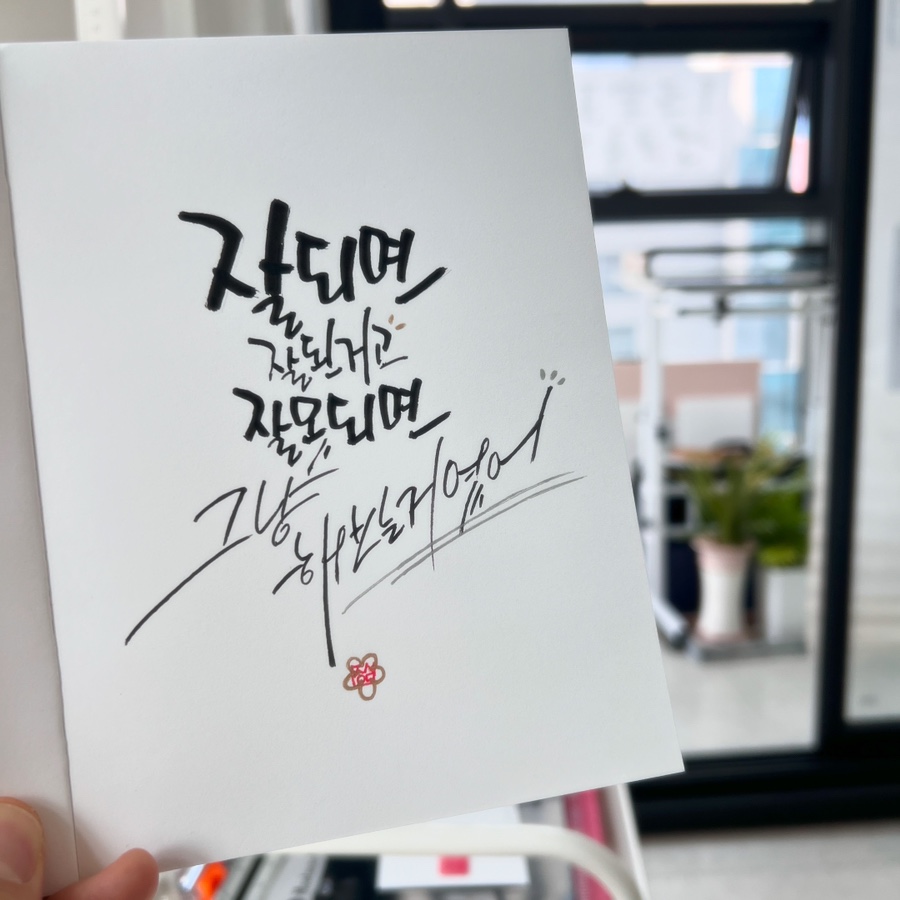 잘되면
잘된거고
잘못되면
그냥
해본거였어